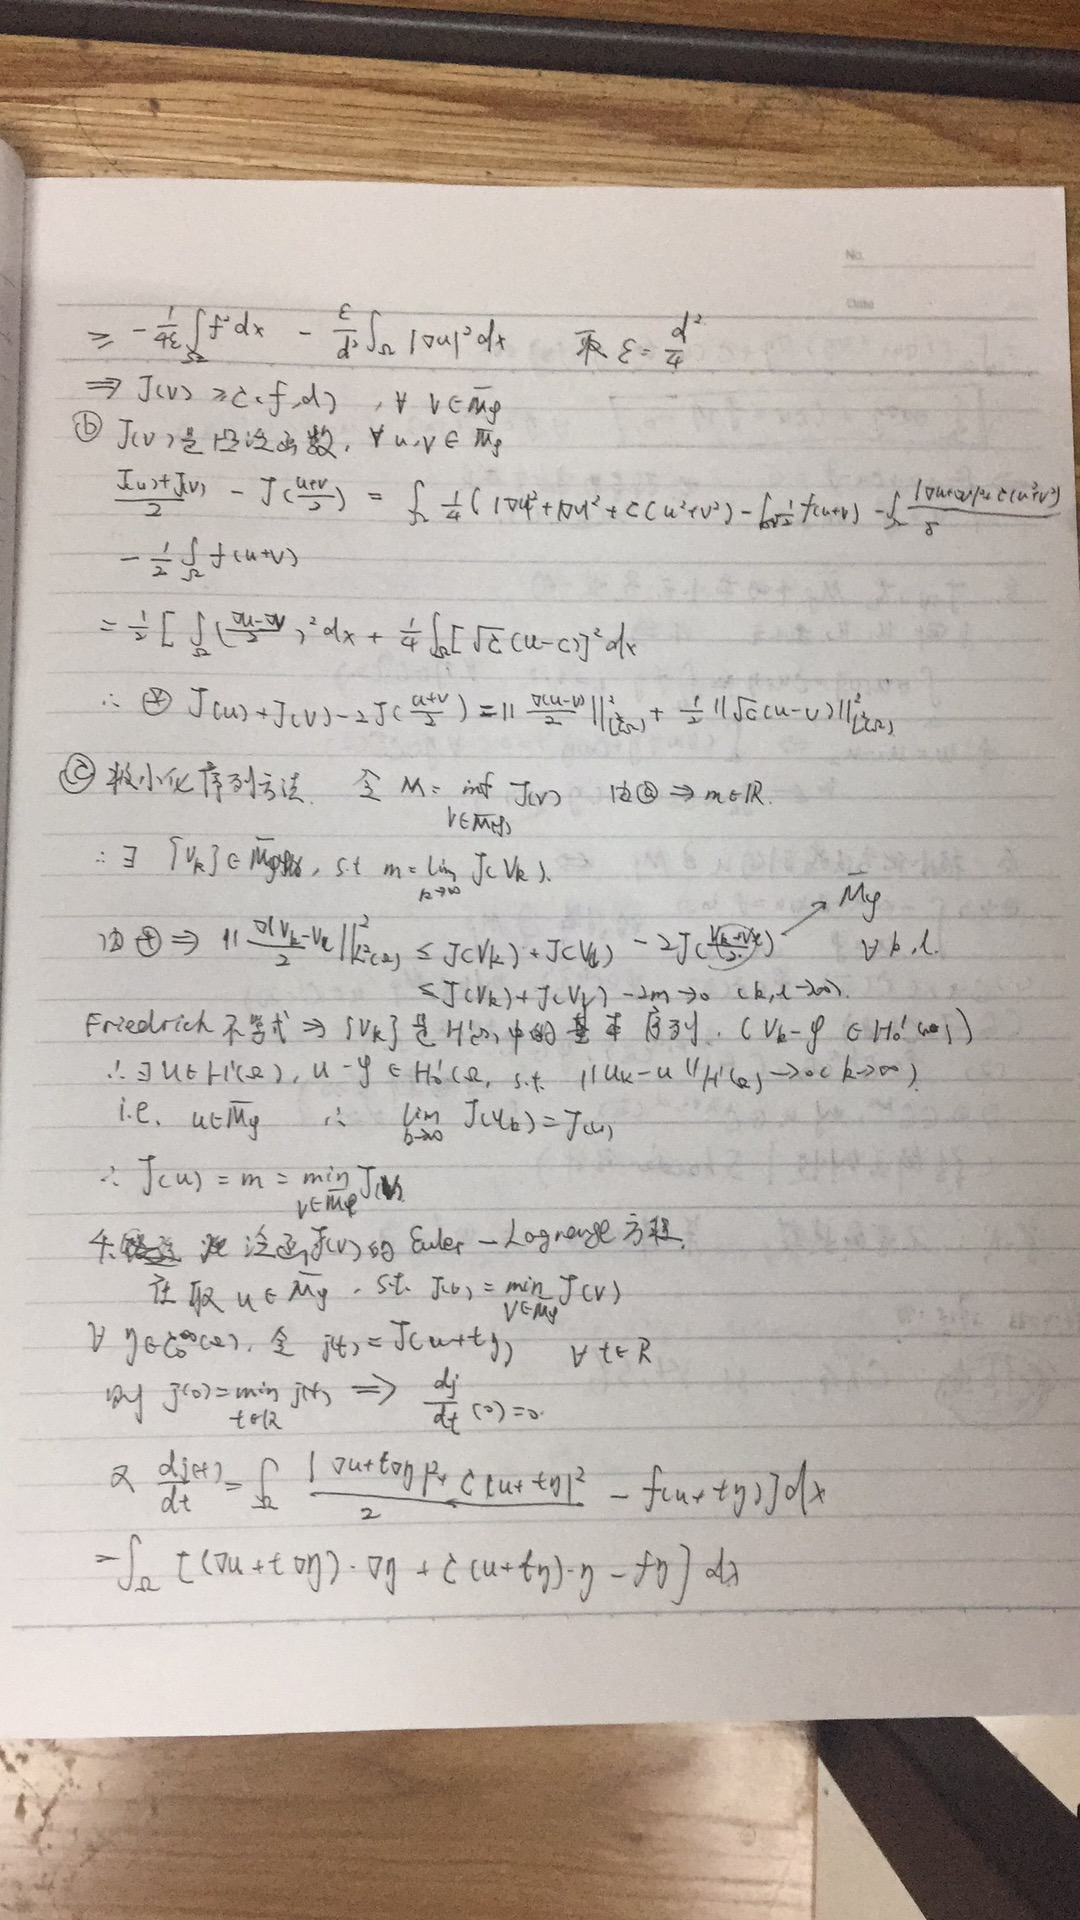 No.
Date
≥ -1/4ε ∫_Ω f² dx - ε/d² ∫_Ω |∇u|² dx 取 ε = d²/4
⇒ J(v) ≥ C(f,d), ∀ v∈M̄φ
ⓑ J(v)是凸泛函数, ∀ u,v∈M̄φ
(J(u)+J(v))/2 - J((u+v)/2) = ∫_Ω 1/4 (|∇u|²+|∇v|²+c(u²+v²) - ∫_Ω 1/2 f(u+v) - ∫_Ω
- 1/2 ∫_Ω f(u+v)
= 1/2 [ ∫_Ω ((∇u-∇v)/2)² dx + 1/4 ∫_Ω [√c(u-c)]² dx
∴ ⊛ J(u)+J(v)-2J((u+v)/2) = ||∇(u-v)/2||²_{L²(Ω)} + 1/2 ||√c(u-v)||²_{L²(Ω)}
ⓒ 极小化序列方法. 令 M = inf_{v∈M̄φ} J(v) 由ⓐ ⇒ m∈R.
∴ ∃ {Vk}∈M̄φ, s.t m = lim_{k→∞} J(Vk).
M̄φ
由⊛ ⇒ ||∇(Vk-Vl)/2||²_{L²(Ω)} ≤ J(Vk)+J(Vl) - 2J((Vk+Vl)/2) ∀ k,l.
≤ J(Vk)+J(Vl) - 2m → 0 (k,l→∞).
Friedrich 不等式 ⇒ {Vk}是H¹(Ω)中的基本序列. (Vk-φ ∈ H₀¹(Ω))
∴ ∃ u∈H¹(Ω), u-φ∈H₀¹(Ω), s.t. ||uk-u||_{H¹(Ω)} → 0 (k→∞)
i.e. u∈M̄φ ∴ lim_{k→∞} J(uk) = J(u)
∴ J(u) = m = min_{v∈M̄φ} J(v)
4. 泛函J(v)的 Euler-Lagrange 方程.
任取 u∈M̄φ, s.t. J(u) = min_{v∈M̄φ} J(v)
∀ η∈C₀^∞(Ω), 令 j(t) = J(u+tη) ∀ t∈R
则 j(0) = min_{t∈R} j(t) ⇒ dj/dt (0) = 0.
又 dj(t)/dt = ∫_Ω (|∇u+t∇η|²+c|u+tη|²)/2 - f(u+tη)] dx
= ∫_Ω [(∇u+t∇η)·∇η + c(u+tη)·η - fη] dx